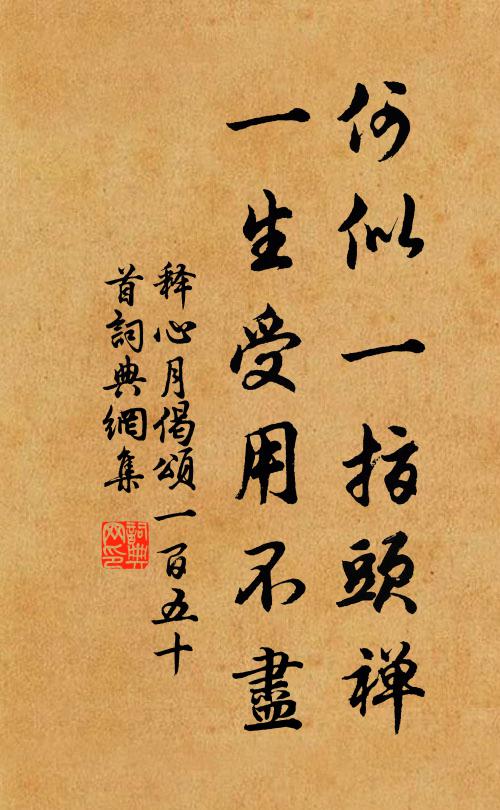 何似一指頭禅
一生受用不盡
释心月偈頌一百五十
首詞典網集
詞典网印